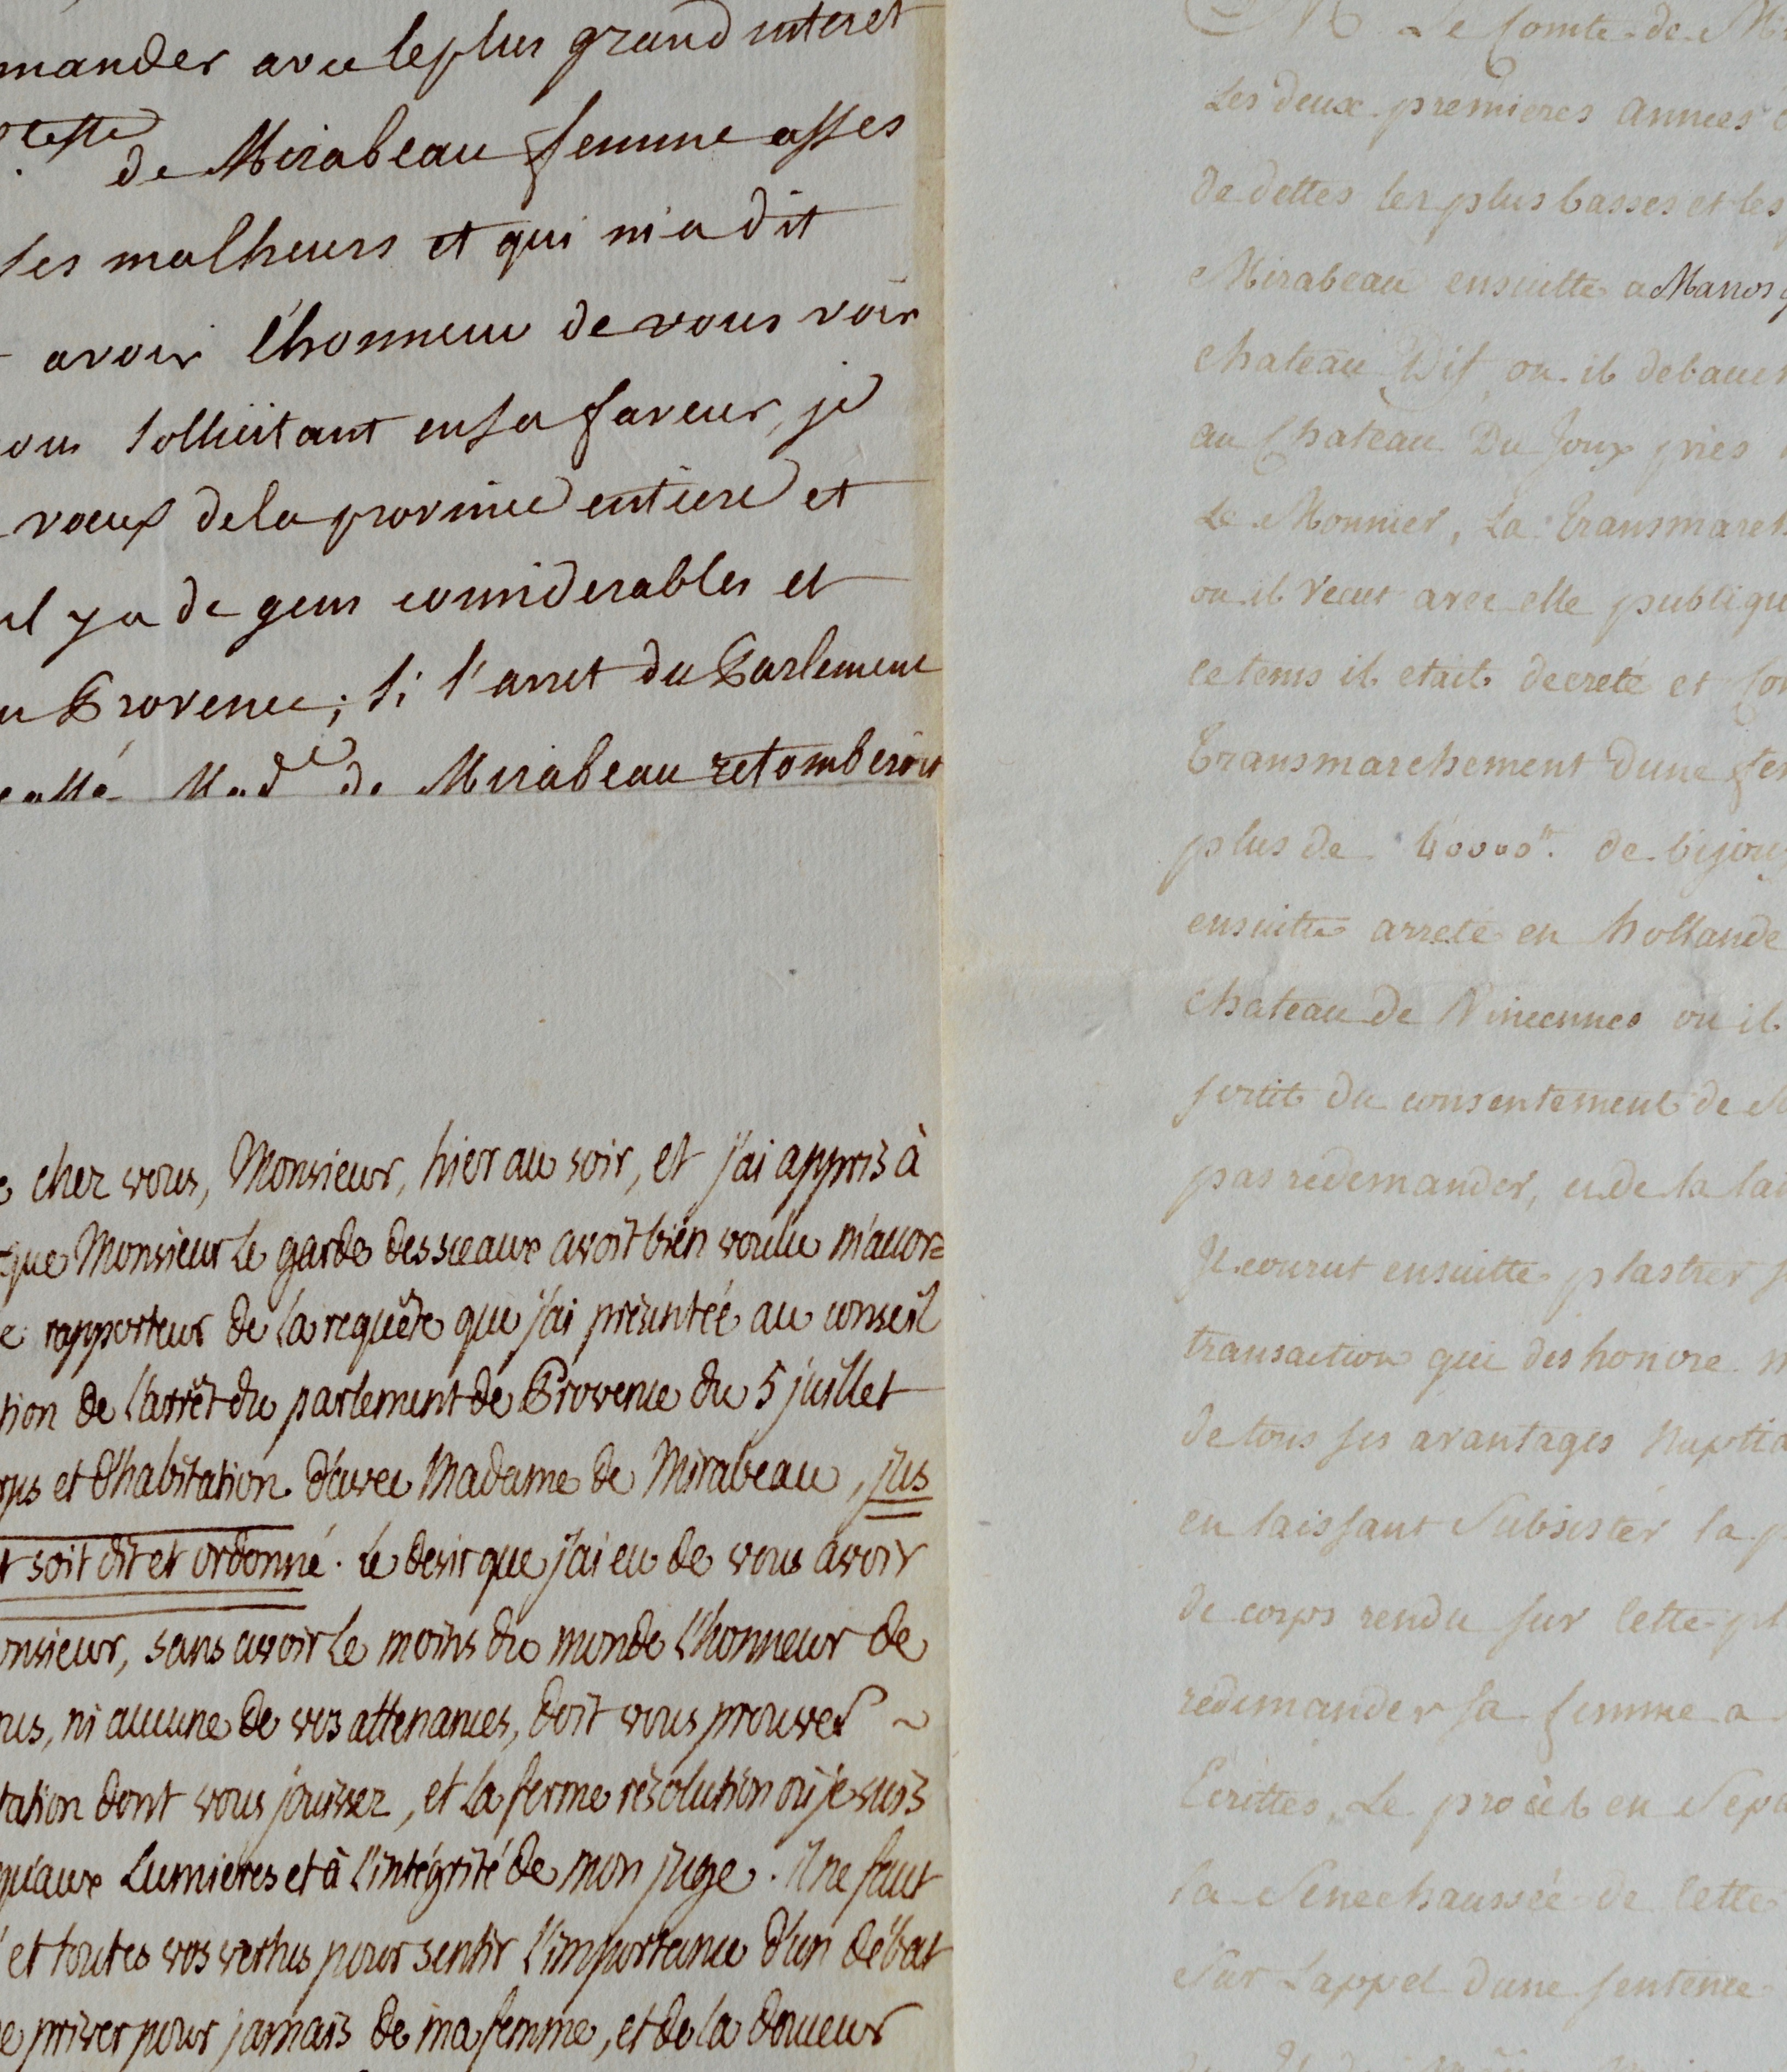 mander avec le plus grand interet
Ctesse de Mirabeau femme asses
ses malheurs et qui m'a dit
avoir l'honneur de vous voir
sollicitant en sa faveur, je
voeux de la province entiere et
il y a de gens considerables et
Provence; si l'arret du Parlement
cassé Made de Mirabeau retomberoit
chez vous, Monsieur, hier au soir, et j'ai appris à
que Monsieur le garde des sceaux avoit bien voulu m'accor=
e rapporteur de la requête que j'ai présentée au conseil
tion de l'arrêt du parlement de Provence du 5 juillet
rps et d'habitation d'avec Madame de Mirabeau, jus
t soit dit et ordonné. Le desir que j'ai eu de vous avoir
onsieur, sans avoir le moins du monde l'honneur de
ous, ni aucune de vos attenances, doit vous prouver ~
tation dont vous jouissez, et la ferme résolution où je suis
qu'aux lumieres et à l'intégrité de mon juge. il ne faut
et toutes vos vertus pour sentir l'importance d'un débat
e priver pour jamais de ma femme, et de la douceur
Le Comte de Mi
Les deux premieres années
de dettes les plus basses et les
Mirabeau ensuitte a Manosq
chateau Dif ou il debauch
au Chateau Du Joux près
Le Monnier, La transmarch
ou il vecut avec elle publique
ce tems il etait decreté et Con
Transmarchement dune fem
plus de 40000tt. de bijoux
ensuitte arreté en hollande
chateau de Vincennes ou il
sortit du consentement de Se
pas redemander, et de la lai
Il courut ensuitte plastrer
transaction qui deshonore M
de tous ses avantages Nuptia
en laissant Subsister la p
de corps rendu sur Cette pl
redemander sa femme a
Ecrittes, Le procès en Sepa
la Senechaussée de Cette
Sur Lappel dune sentence